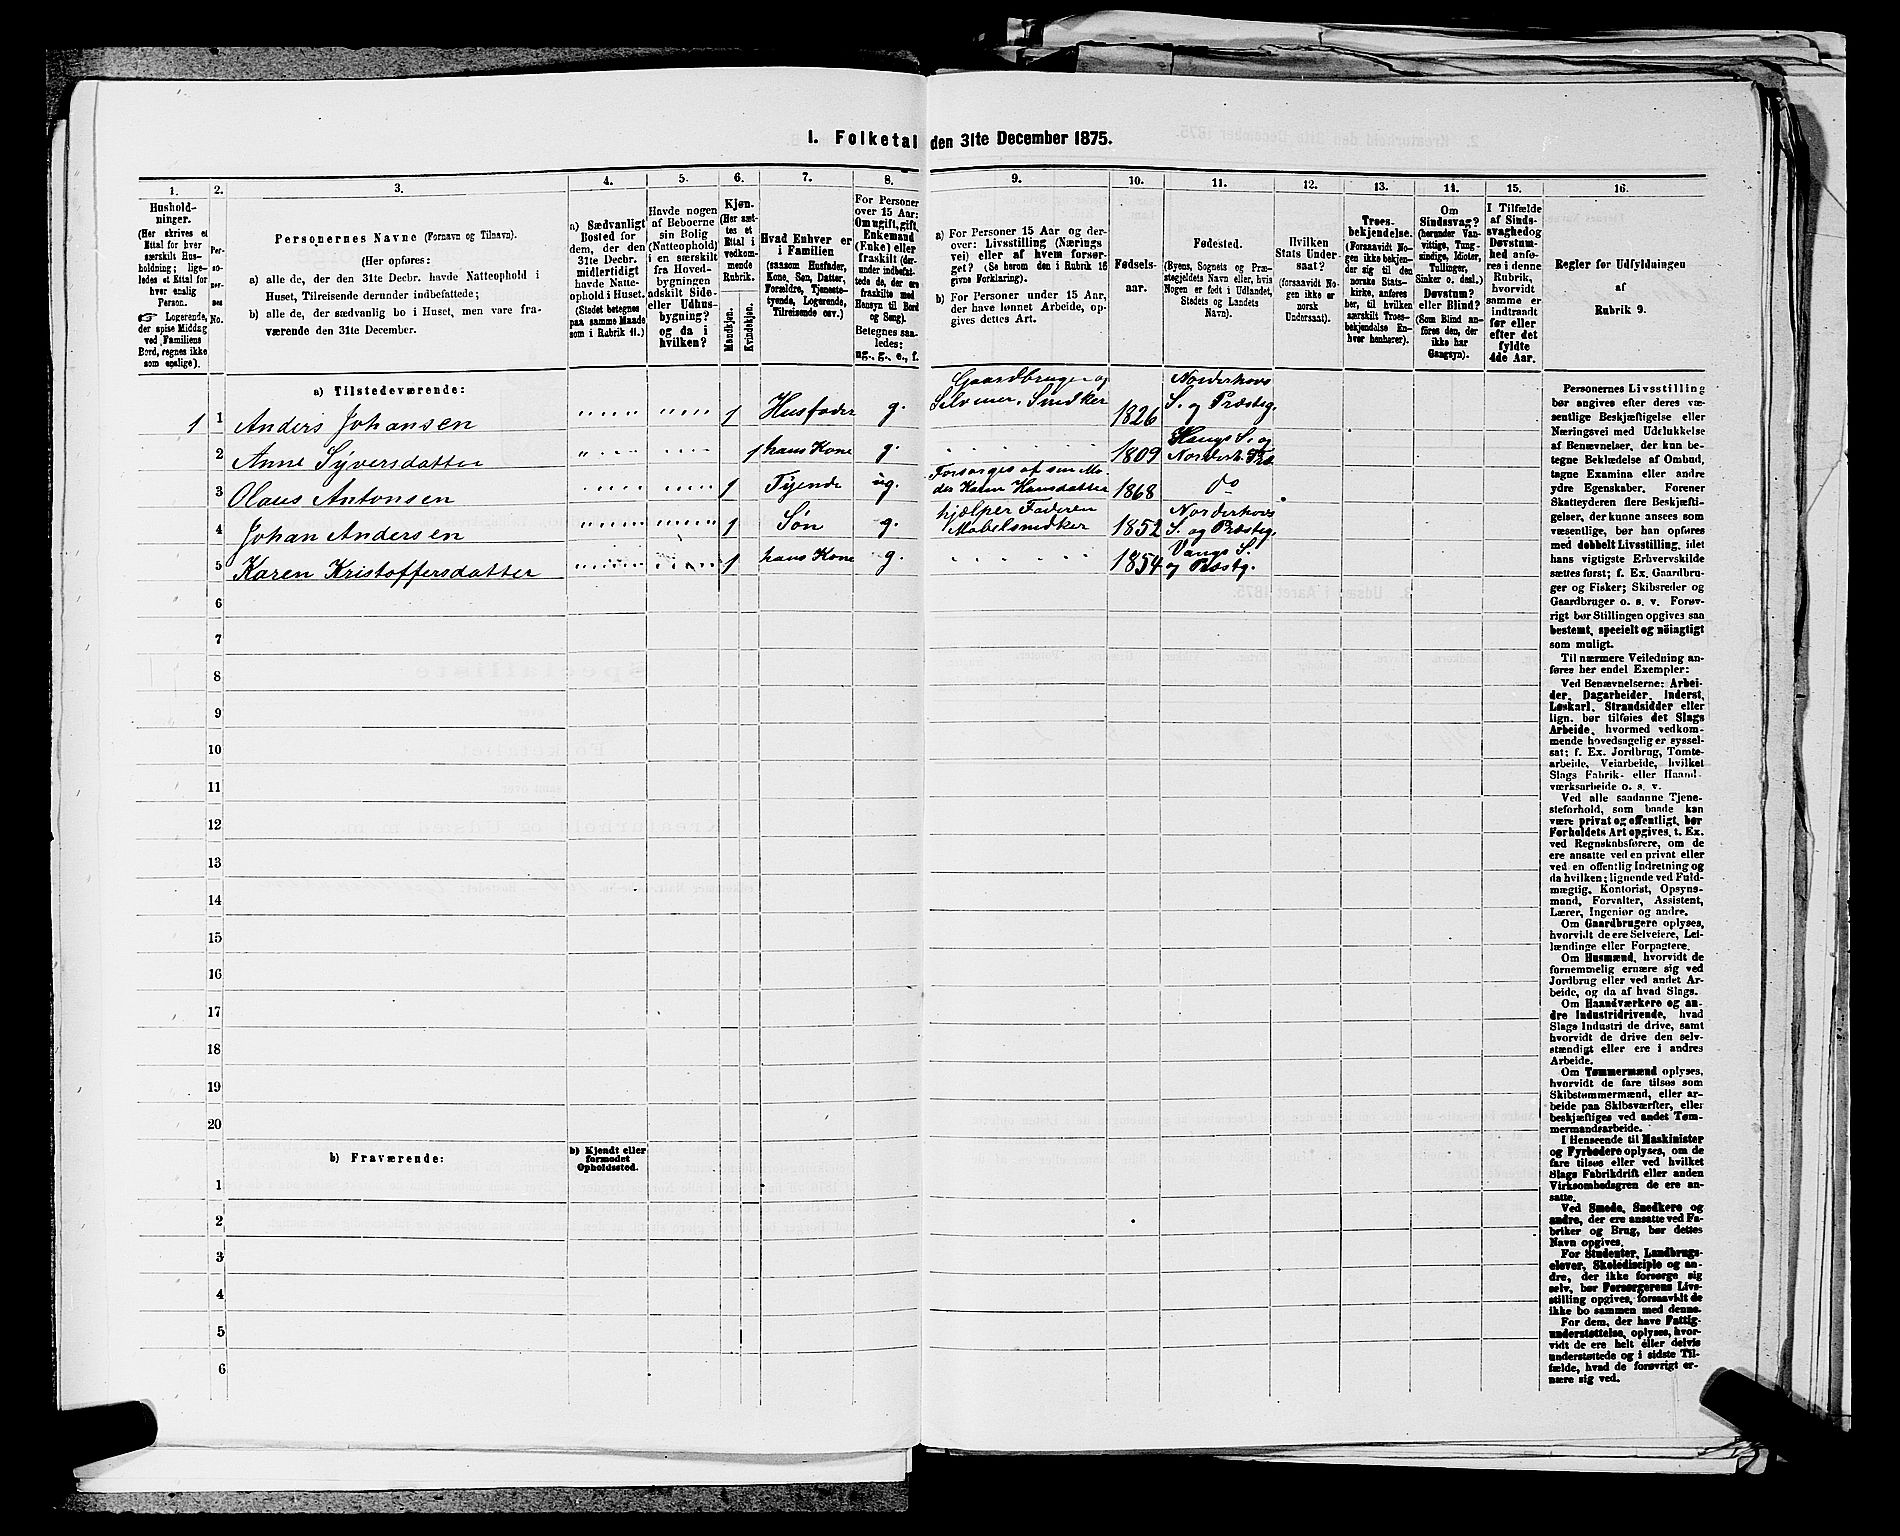 I. Folketal den 31te December 1875.
1. 2. 3. 4. 5. 6. 7. 8. 9. 10. 11. 12. 13. 14. 15. 16.
Hushold-
ninger.
(Her skrives et
Ettal for hver
særskilt Hus-
holdning; lige-
ledes et Ettal
for hver enslig
Person.
☞ Logerende,
der spise Middag
ved Familiens
Bord, regnes ikke
som enslige).
Per-
so-
ner-
nes
No.
Personernes Navne (Fornavn og Tilnavn).
(Her opføres:
a) alle de, der den 31te Decbr. havde Natteophold i
Huset, Tilreisende derunder indbefattede;
b) alle de, der sædvanlig bo i Huset, men vare fra-
værende den 31te December.
a) Sædvanligt
Bosted for
dem, der den
31te Decbr.
midlertidigt
havde Natte-
ophold i Huset.
(Stedet betegnes
paa samme Maade
som i Rubrik 11.)
Havde nogen
af Beboerne
sin Bolig
(Natteophold)
i en særskilt
fra Hoved-
bygningen
adskilt Side-
eller Udhus-
bygning?
og da i
hvilken?
Kjøn.
(Her sæt-
tes et
Ettal i
vedkom-
mende
Rubrik.
Mandkjøn.
Kvindekjøn.
Hvad Enhver er
i Familien
(saasom Husfader,
Kone, Søn, Datter,
Forældre, Tjeneste-
tyende, Logerende,
Tilreisende osv.)
For Personer
over 15 Aar:
Om ugift, gift,
Enkemand
(Enke) eller
fraskilt (der-
under indbefat-
tede de, der ere
fraskilte med
Hensyn til Bord
og Seng).
Betegnes saa-
ledes:
ug., g., e., f.
a) For Personer 15 Aar og der-
over: Livsstilling (Nærings
vei) eller af hvem forsør-
get? (Se herom den i Rubrik 16
givne Forklaring).
b) For Personer under 15 Aar,
der have lønnet Arbeide, op-
gives dettes Art.
Fødsels-
aar.
Fødested.
(Byens, Sognets og Præ-
stegjeldets Navn eller, hvis
Nogen er født i Udlandet,
Stedets og Landets
Navn).
Hvilken
Stats Under-
saat?
(forsaavidt No-
gen ikke er
norsk
Undersaat).
Troes-
bekjendelse.
(Forsaavidt No-
gen ikke bekjen-
der sig til den
norske Stats-
kirke, anføres
her, til hvilken
særskilt Troes-
bekjendelse En-
hver henhører).
Om
Sindssvag?
(herunder Van-
vittige, Tung-
sindige, Idioter,
Tullinger,
Sinker o. desl.)
Døvstum?
eller Blind?
(Som Blind an-
føres den, der
ikke har
Gangsyn).
I Tilfælde
af Sinds-
svaghed og
Døvstum-
hed anfø-
res i denne
Rubrik,
hvorvidt
samme er
indtraadt
før eller
efter det
fyldte
4de Aar.
Regler for Udfyldningen
af
Rubrik 9.
a) Tilstedeværende:
1 1 Anders Johansen 1 Husfader g. Gaardbruger og Selveier. Snedker 1826 Norderhovs S. og Præsteg.
2 Anne Syversdatter 1 hans Kone g. 1809 Haugs S. og Norderh. Præ
3 Olaus Antonsen 1 Tyende ug. Forsørges af sin Moder Karen Hansdatter 1868 do
4 Johan Andersen 1 Søn g. hjælper Faderen Møbelsnedker 1852 Norderhovs S. og Præsteg.
5 Karen Kristoffersdatter 1 hans Kone g. 1854 Vangs S. og Præstg.
6
7
8
9
10
11
12
13
14
15
16
17
18
19
20
b) Fraværende:
b) Kjendt eller
formodet
Opholdssted.
1
2
3
4
5
6
Personernes Livsstilling
bør angives efter deres væ-
sentlige Beskjæftigelse eller
Næringsvei med Udelukkelse
af Benævnelser, der kun be-
tegne Beklædelse af Ombud,
tagne Examina eller andre
ydre Egenskaber. Forener
Skatteyderen flere Beskjæfti-
gelser, der kunne ansees som
væsentlige, bør han opføres
med dobbelt Livsstilling, idet
hans vigtigste Erhvervskilde
sættes først; f. Ex. Gaardbru-
ger og Fisker; Skibsreder og
Gaardbruger o. s. v. Forøv-
rigt bør Stillingen opgives saa
bestemt, specielt og nöiagtigt
som muligt.
Til nærmere Veiledning an-
føres her endel Exempler:
Ved Benævnelserne: Arbei-
der, Dagarbeider, Inderst,
Løskarl, Strandsidder eller
lign. bør tilføies det Slags
Arbeide, hvormed vedkom-
mende hovedsagelig er syssel-
sat; f. Ex. Jordbrug, Tomte-
arbeide, Veiarbeide, hvilket
Slags Fabrik- eller Haand-
værksarbeide o. s. v.
Ved alle saadanne Tjene-
steforhold, som baade kan
være privat og offentligt, bør
Forholdets Art opgives, t. Ex.
ved Regnskabsførere, om de
ere ansatte ved en privat eller
ved en offentlig Indretning og
da hvilken; lignende ved Fuld-
mægtig, Kontorist, Opsyns-
mand, Forvalter, Assistent,
Lærer, Ingeniør og andre.
Om Gaardbrugere oplyses,
hvorvidt de ere Selveiere, Lei-
lændinge eller Forpagtere.
Om Husmænd, hvorvidt de
fornemmelig ernære sig ved
Jordbrug eller ved andet Ar-
beide, og da af hvad Slags.
Om Haandværkere og an-
dre Industridrivende, hvad
Slags Industri de drive, samt
hvorvidt de drive den selv-
stændigt eller ere i andres
Arbeide.
Om Tømmermænd oplyses,
hvorvidt de fare tilsøs som
Skibstømmermænd, eller ar-
beide paa Skibsværfter, eller
beskjæftiges ved andet Tøm-
mermandsarbeide.
I Henseende til Maskinister
og Fyrbødere oplyses, om de
fare tilsøs eller ved hvilket
Slags Fabrikdrift eller anden
Virksomhedsgren de ere an-
satte.
Ved Smede, Snedkere og
andre, der ere ansatte ved Fa-
briker og Brug, bør dettes
Navn opgives.
For Studenter, Landbrugs-
elever, Skoledisciple og an-
dre, der ikke forsørge sig
selv, bør Forsørgerens Livs-
stilling opgives, forsaavidt de
ikke bo sammen med denne.
For dem, der have Fattig-
understøttelse, oplyses, hvor-
vidt de ere helt eller delvis
understøttede og i sidste Til-
fælde, hvad de forøvrigt er-
nære sig ved.